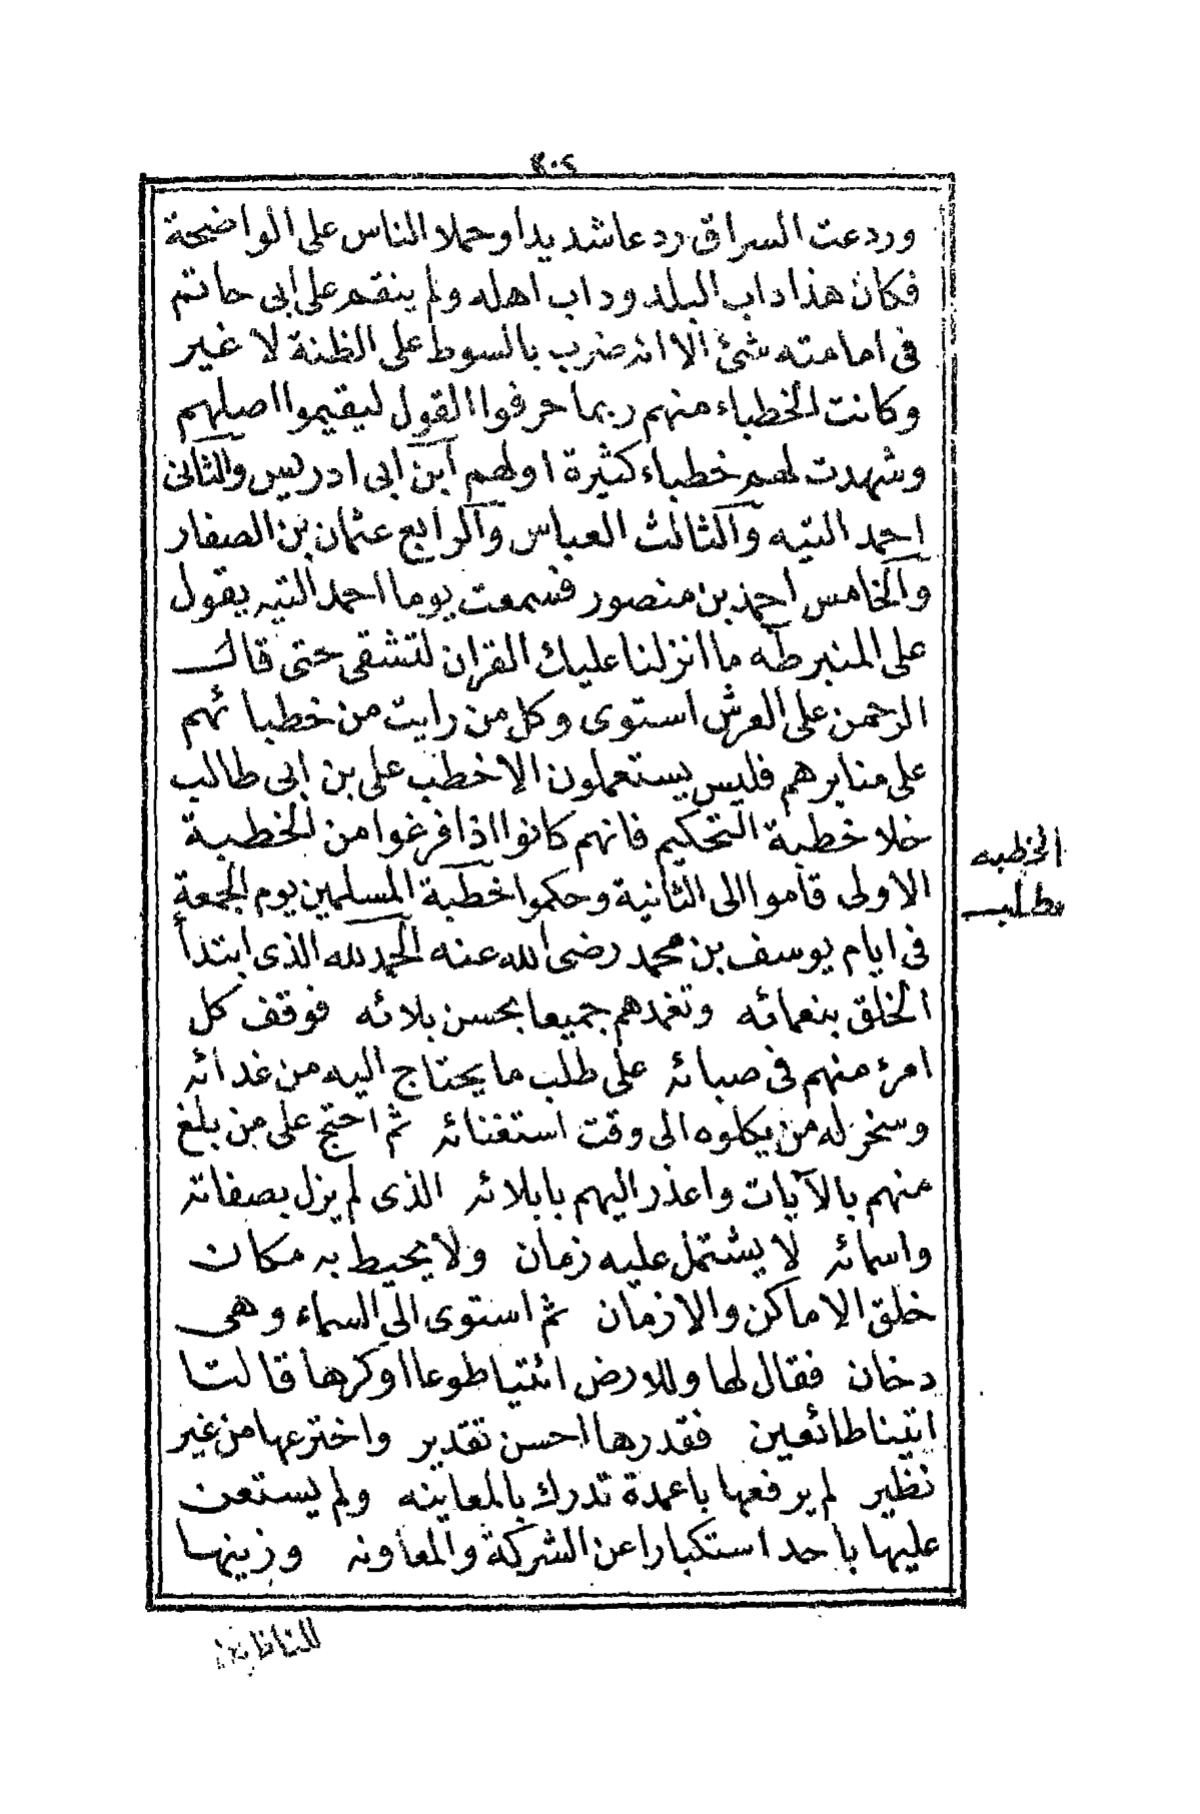 ٤٠٤
وردعت السراق ردعا شديدا وحملا الناس على الواضحة
فكان هذا داب البلد وداب اهله ولم ينقم على ابى حاتم
فى امامته شئ الا انه ضرب بالسوط على الظنة لا غير
وكانت الخطباء منهم ربما حرفوا القول ليقيموا اصلهم
وشهدت لهم خطباء كثيرة اولهم ابن ابى ادريس والثانى
احمد التيه والثالث العباس والرابع عثمان بن الصفار
والخامس احمد بن منصور فسمعت يوما احمد التيه يقول
على المنبر طه ما انزلنا عليك القران لتشقى حتى قال
الرحمن على العرش استوى وكل من رايت من خطبائهم
على منابرهم فليس يستعملون الا خطب على بن ابى طالب
خلا خطبة التحكيم فانهم كانوا اذا فرغوا من الخطبة
الاولى قاموا الى الثانية وحكموا خطبة المسلمين يوم الجمعة
الخطبه
مطلب
فى ايام يوسف بن محمد رضى الله عنه الحمد لله الذى ابتدأ
الخلق بنعمائه وتغمدهم جميعا بحسن بلائه فوقف كل
امرء منهم فى صبائه على طلب ما يحتاج اليه من غدائه
وسخر له من يكلوه الى وقت استغنائه ثم احتج على من بلغ
منهم بالآيات واعذر اليهم بابلائه الذى لم يزل بصفاته
واسمائه لا يشتمل عليه زمان ولا يحيط به مكان
خلق الاماكن والازمان ثم استوى الى السماء وهى
دخان فقال لها وللارض ائتيا طوعا اوكرها قالتا
اتينا طائعين فقدرها احسن تقدير واخترعها من غير
نظير لم يرفعها باعمدة تدرك بالمعاينه ولم يستعن
عليها باحد استكبارا عن الشركة والمعاونه وزينها
للناظرين